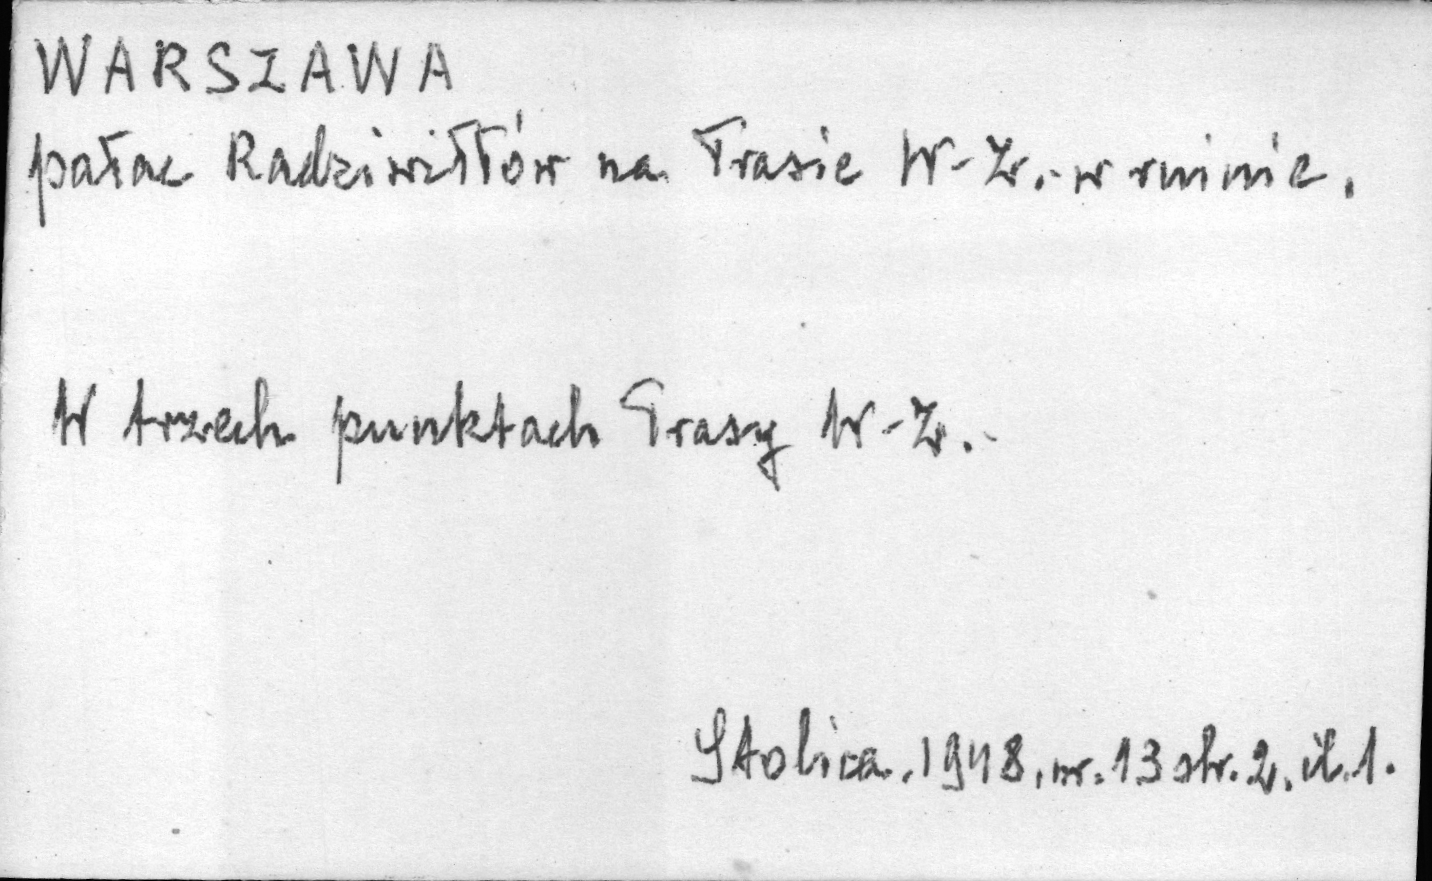 WARSZAWA
pałac Radziwiłłów na Trasie W-Z.- w ruinie.
W trzech punktach Trasy W-Z.-
Stolica. 1948, nr. 13 str. 2. il. 1.